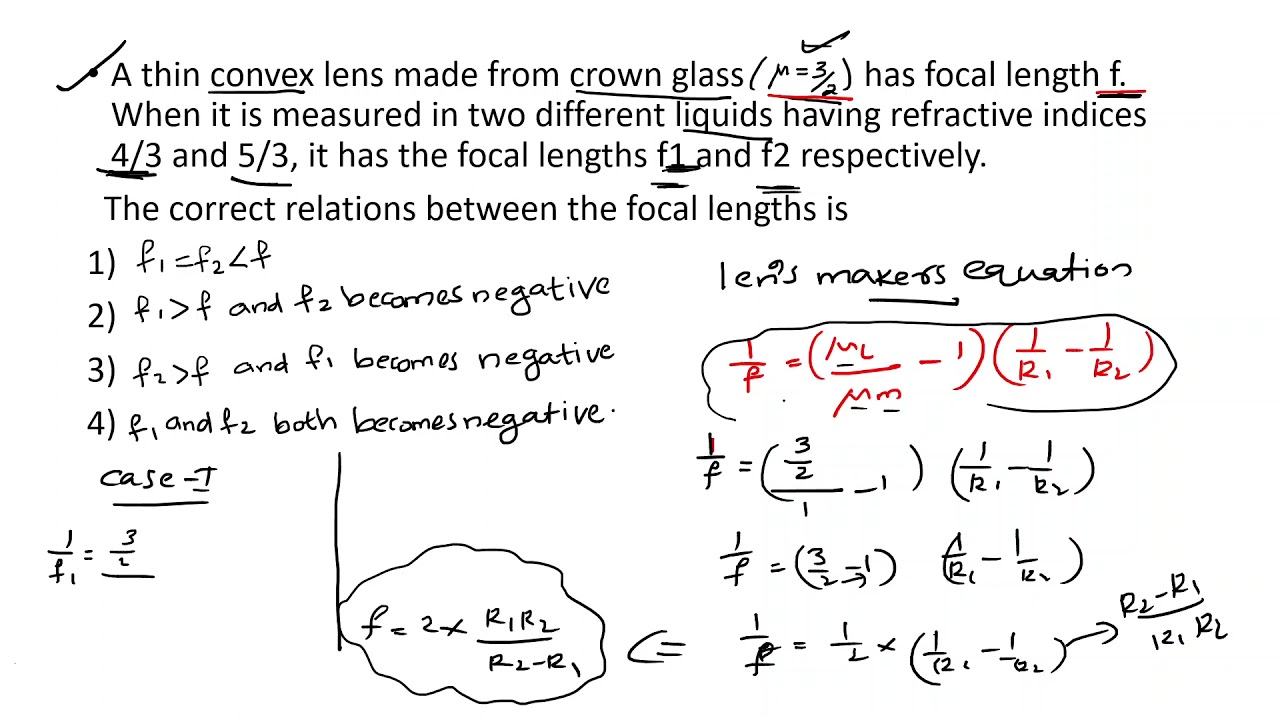 • A thin convex lens made from crown glass (μ = 3/2) has focal length f.
When it is measured in two different liquids having refractive indices
4/3 and 5/3, it has the focal lengths f1 and f2 respectively.
The correct relations between the focal lengths is
1) f₁ = f₂ < f
2) f₁ > f and f₂ becomes negative
3) f₂ > f and f₁ becomes negative
4) f₁ and f₂ both becomes negative.
case - I
1/f₁ = 3/2
f = 2 × R₁R₂/(R₂ - R₁)
len's makers equation
1/f = (μL/μm - 1)(1/R₁ - 1/R₂)
1/f = ((3/2)/1 - 1) (1/R₁ - 1/R₂)
1/f = (3/2 - 1) (1/R₁ - 1/R₂)
<= 1/f = 1/2 × (1/R₁ - 1/R₂) → R₂ - R₁/R₁ R₂